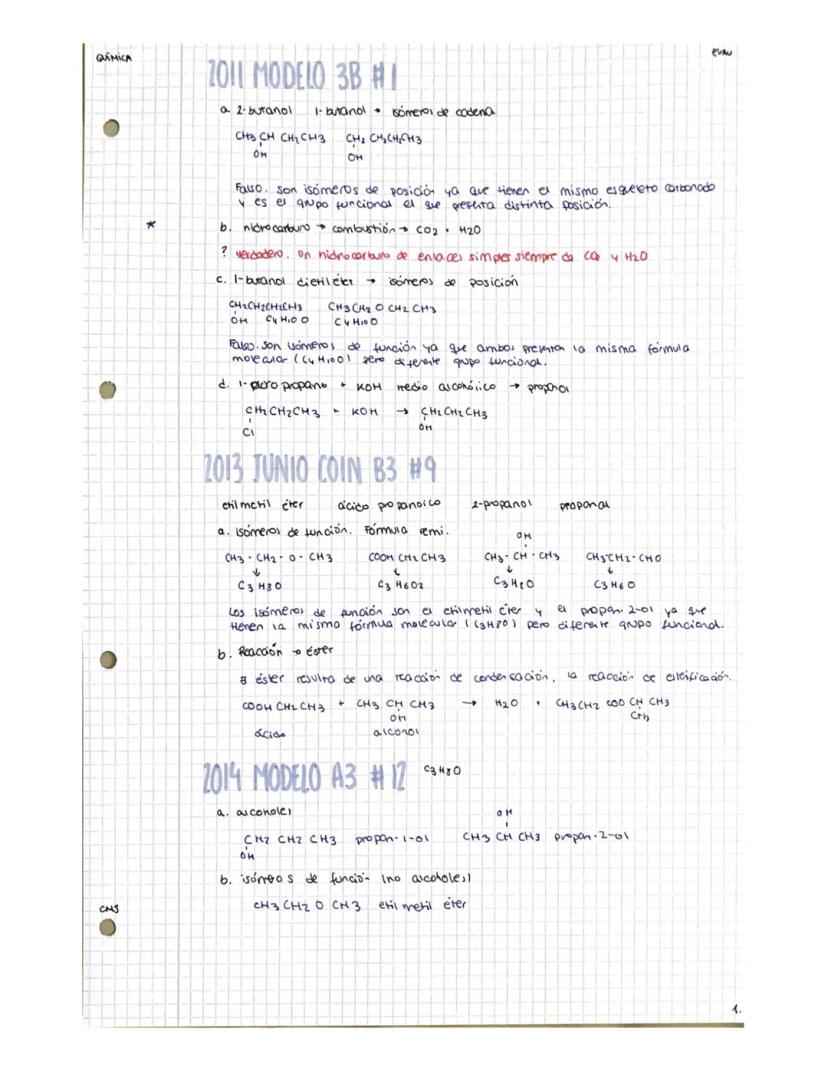 QUÍMICA
EVAU
2011 MODELO 3B #1
a. 2-butanol 1-butanol → isómeros de cadena
CH3 CH CH2 CH3 CH2 CH2 CH2 CH3
OH OH
Falso. son isómeros de posición ya que tienen el mismo esqueleto carbonado
y es el grupo funcional el que presenta distinta posición.
* b. hidrocarburo → combustión → CO2 + H2O
? verdadero. un hidrocarburo de enlaces simples siempre da CO2 y H2O
c. 1-butanol dietiléter → isómeros de posición
CH2CH2CH2CH3 CH3 CH2 O CH2 CH3
OH C4H10O C4H10O
Falso. son isómeros de función ya que ambos presentan la misma fórmula
molecular (C4H10O) pero diferente grupo funcional.
d. 1-cloro propano + KOH medio alcohólico → propanol
CH2CH2CH3 + KOH → CH2CH2CH3
Cl OH
2013 JUNIO COIN B3 #9
etil metil éter ácido propanoico 2-propanol propanal
a. isómeros de función. Fórmula semi.
OH
CH3 - CH2 - O - CH3 COOH CH2 CH3 CH3 - CH - CH3 CH3-CH2-CHO
↓ ↓ ↓ ↓
C3H8O C3H6O2 C3H8O C3H6O
Los isómeros de función son el etilmetil éter y el propan-2-ol ya que
tienen la mismo fórmula molecular (C3H8O) pero diferente grupo funcional.
b. Reacción → éster
El éster resulta de una reacción de condensación, la reacción de esterificación.
COOH CH2 CH3 + CH3 CH CH3 → H2O + CH3 CH2 COO CH CH3
OH CH3
ácido alcohol
2014 MODELO A3 #12 C3H8O
a. alcoholes
OH
CH2 CH2 CH3 propan-1-ol CH3 CH CH3 propan-2-ol
OH
b. isómeros de función (no alcoholes)
CH3 CH2 O CH3 etil metil éter
CMS
1.